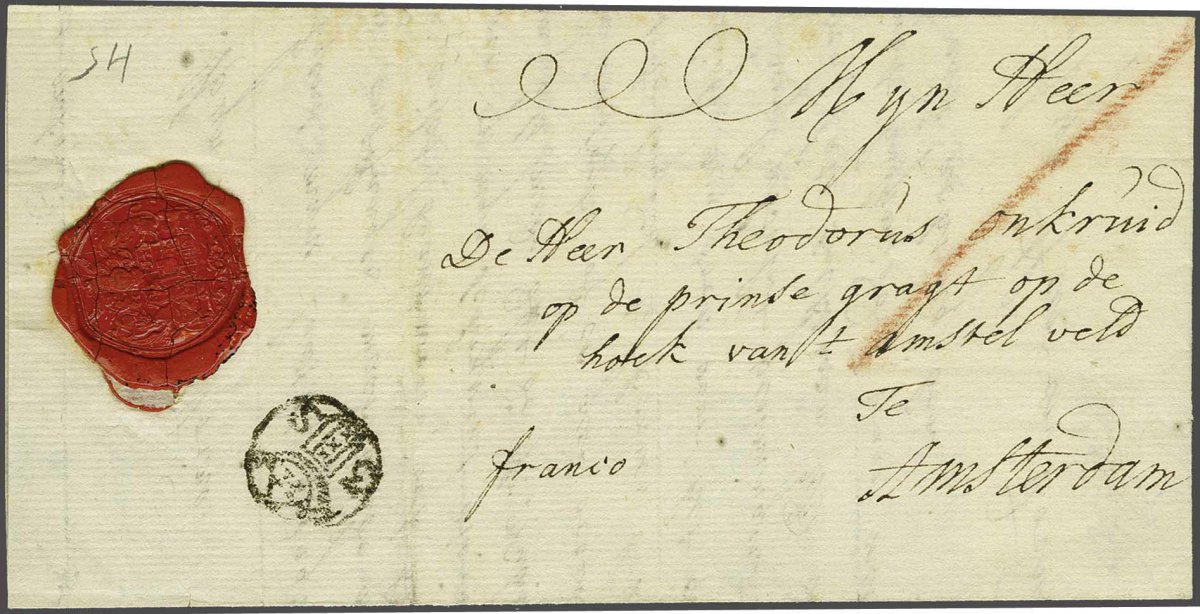 SH
Mijn Heer
De Heer Theodorus onkruid
op de prinse gragt op de
hoek van t amstel veld
Te
franco Amsterdam